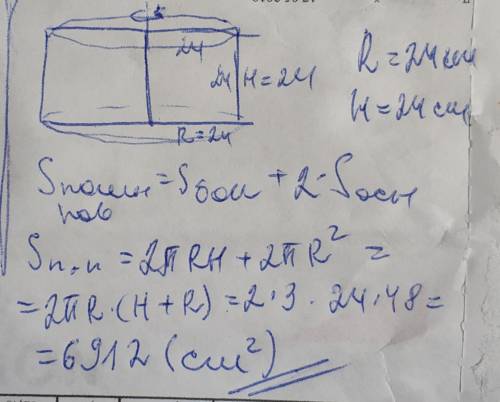 24
24 H=24
R=24
R=24 cm
H=24 cm
Sполн = Sбок + 2·Sосн
пов
Sп.п = 2πRH + 2πR² =
= 2πR·(H+R) = 2·3·24·48 =
= 6912 (см²)